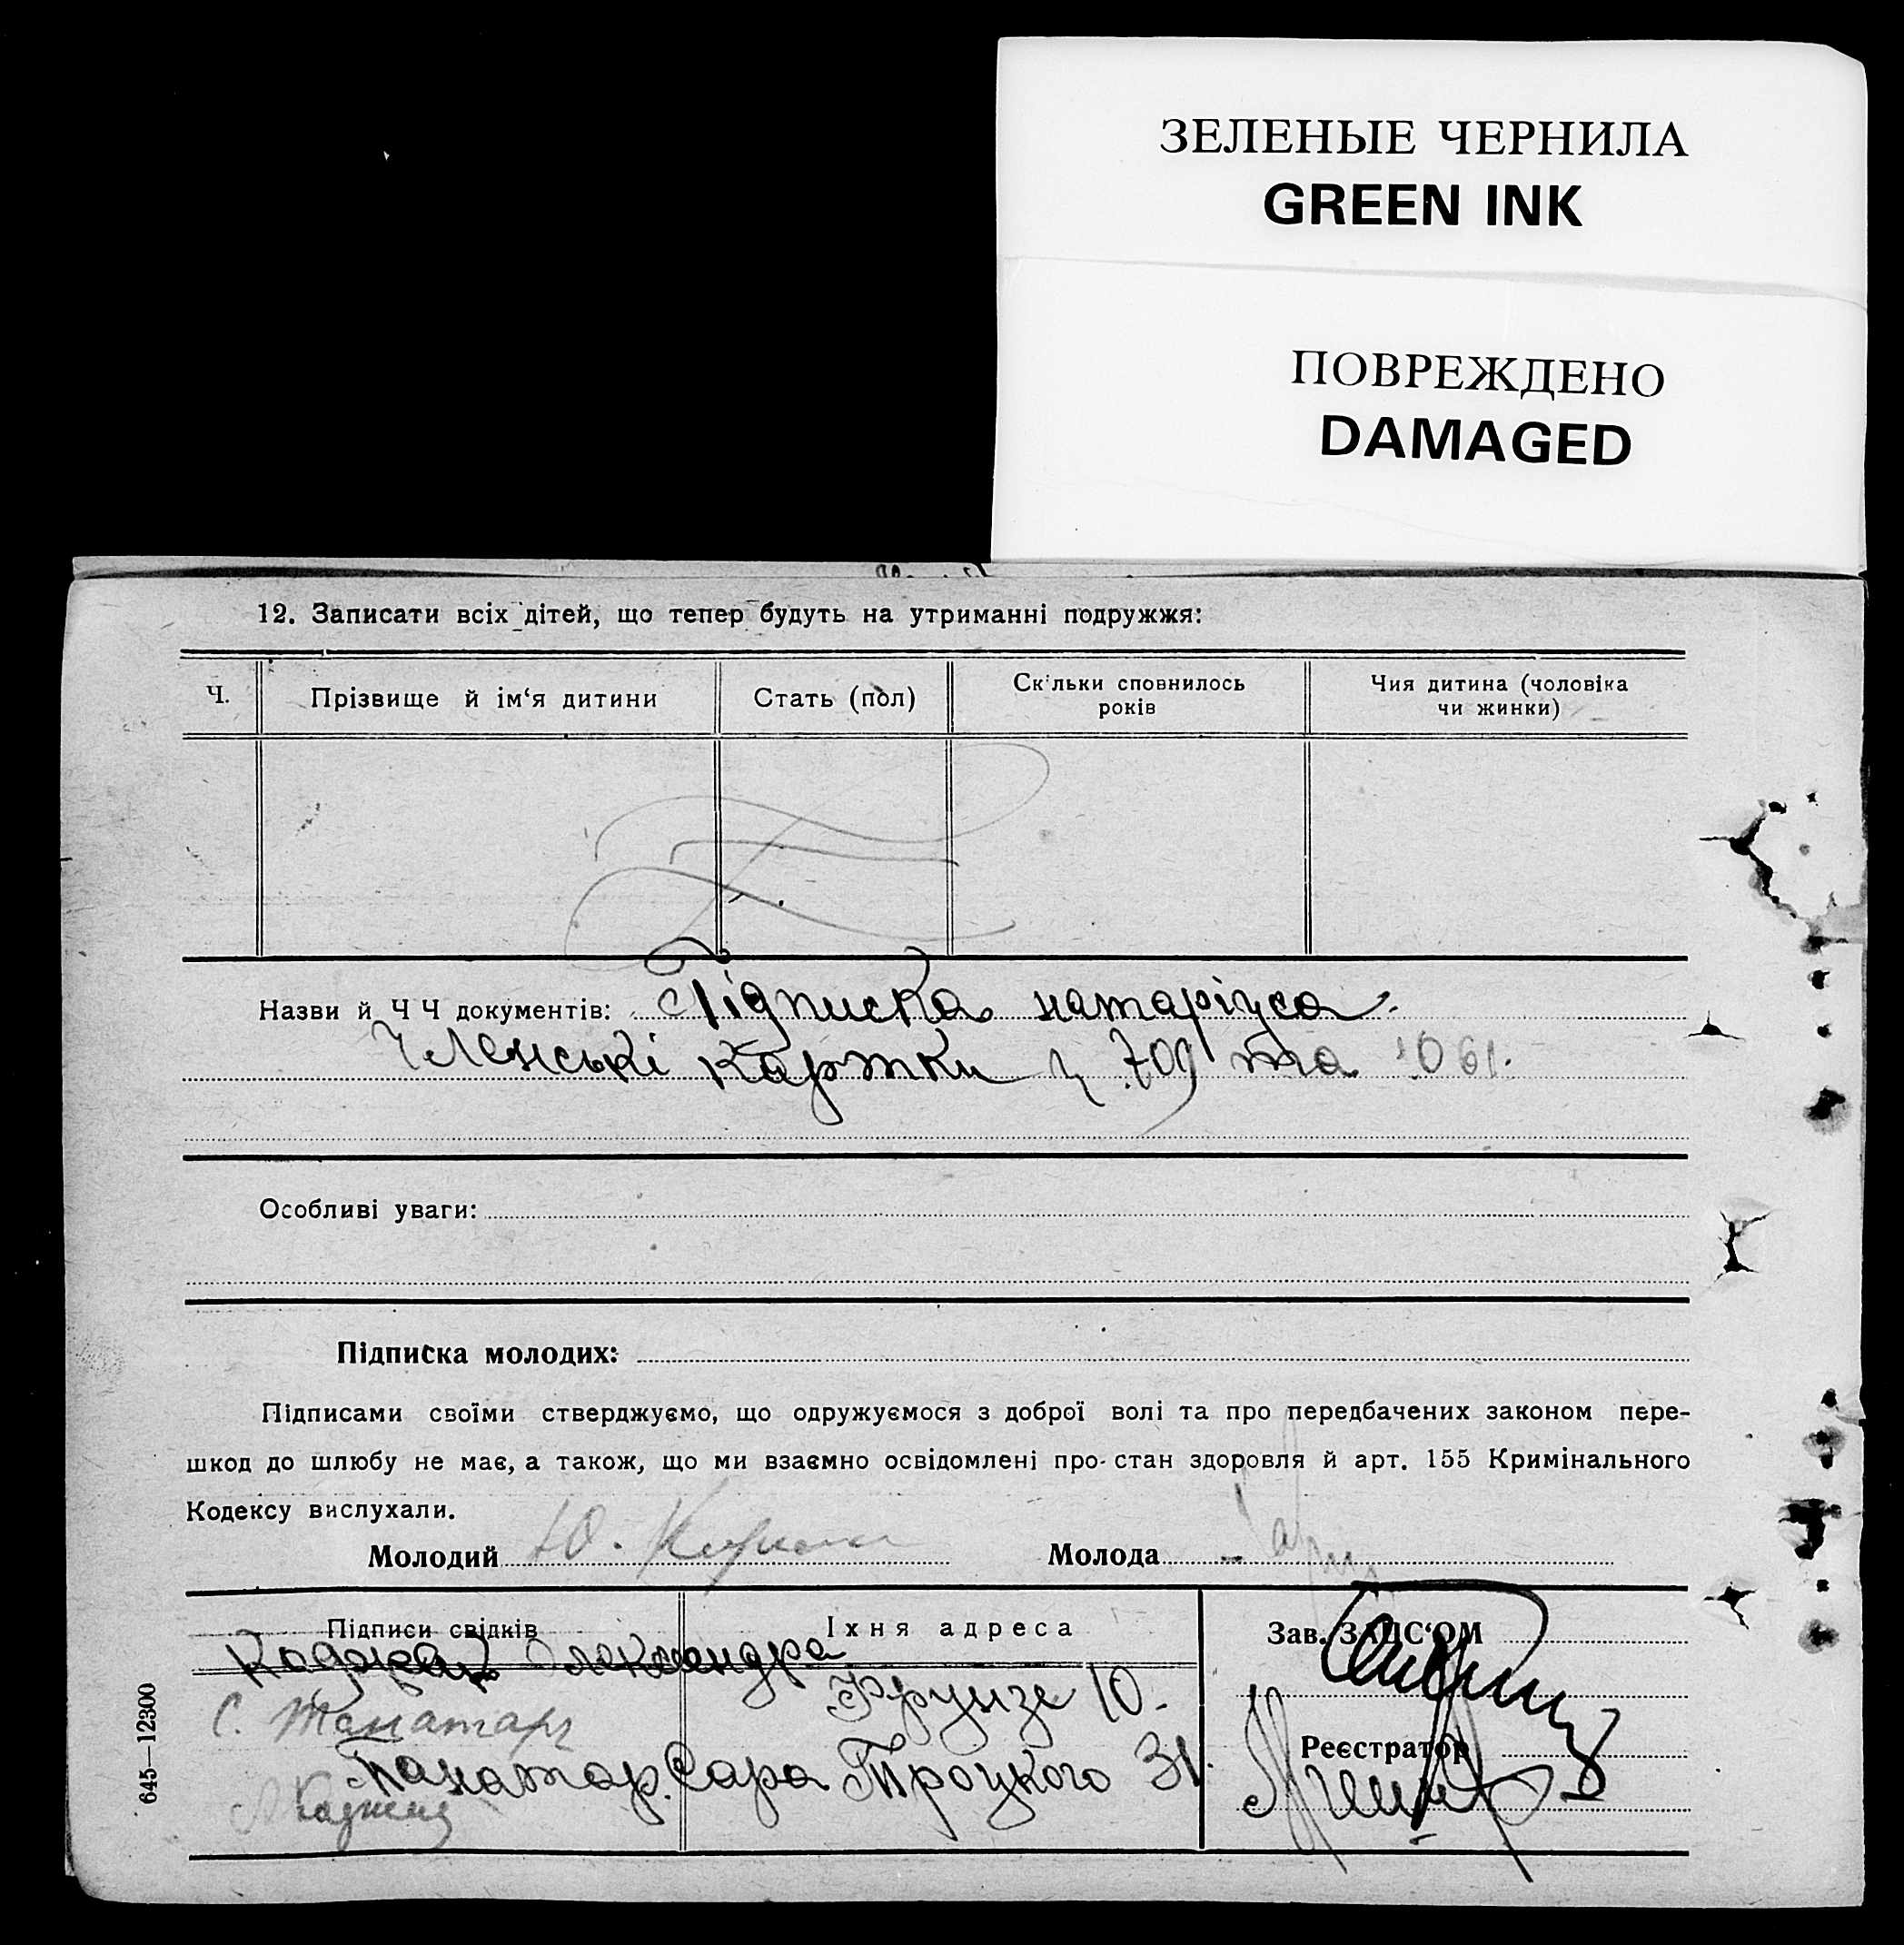 ЗЕЛЕНЫЕ ЧЕРНИЛА
GREEN INK
ПОВРЕЖДЕНО
DAMAGED
12. Записати всіх дітей, що тепер будуть на утриманні подружжя:
Ч.
Прізвище й ім‘я дитини
Стать (пол)
Скільки сповнилось
років
Чия дитина (чоловіка
чи жинки)
Назви й Ч Ч документів: Підписка натаріуса
Членські картки ч 709 та 1061.
Особливі уваги:
Підписка молодих:
Підписами своїми стверджуємо, що одружуємося з доброї волі та про передбачених законом пере-
шкод до шлюбу не має, а також, що ми взаємно освідомлені про стан здоровля й арт. 155 Кримінального
Кодексу вислухали.
Молодий Ю.
Молода
Підписи свідків
Їхня адреса
Зав. ЗАПС‘ОМ
Олександра
Фрунзе 10.
С. Танатар
Реєстратор
Танатар Сара Троцкого 31.
645—12300